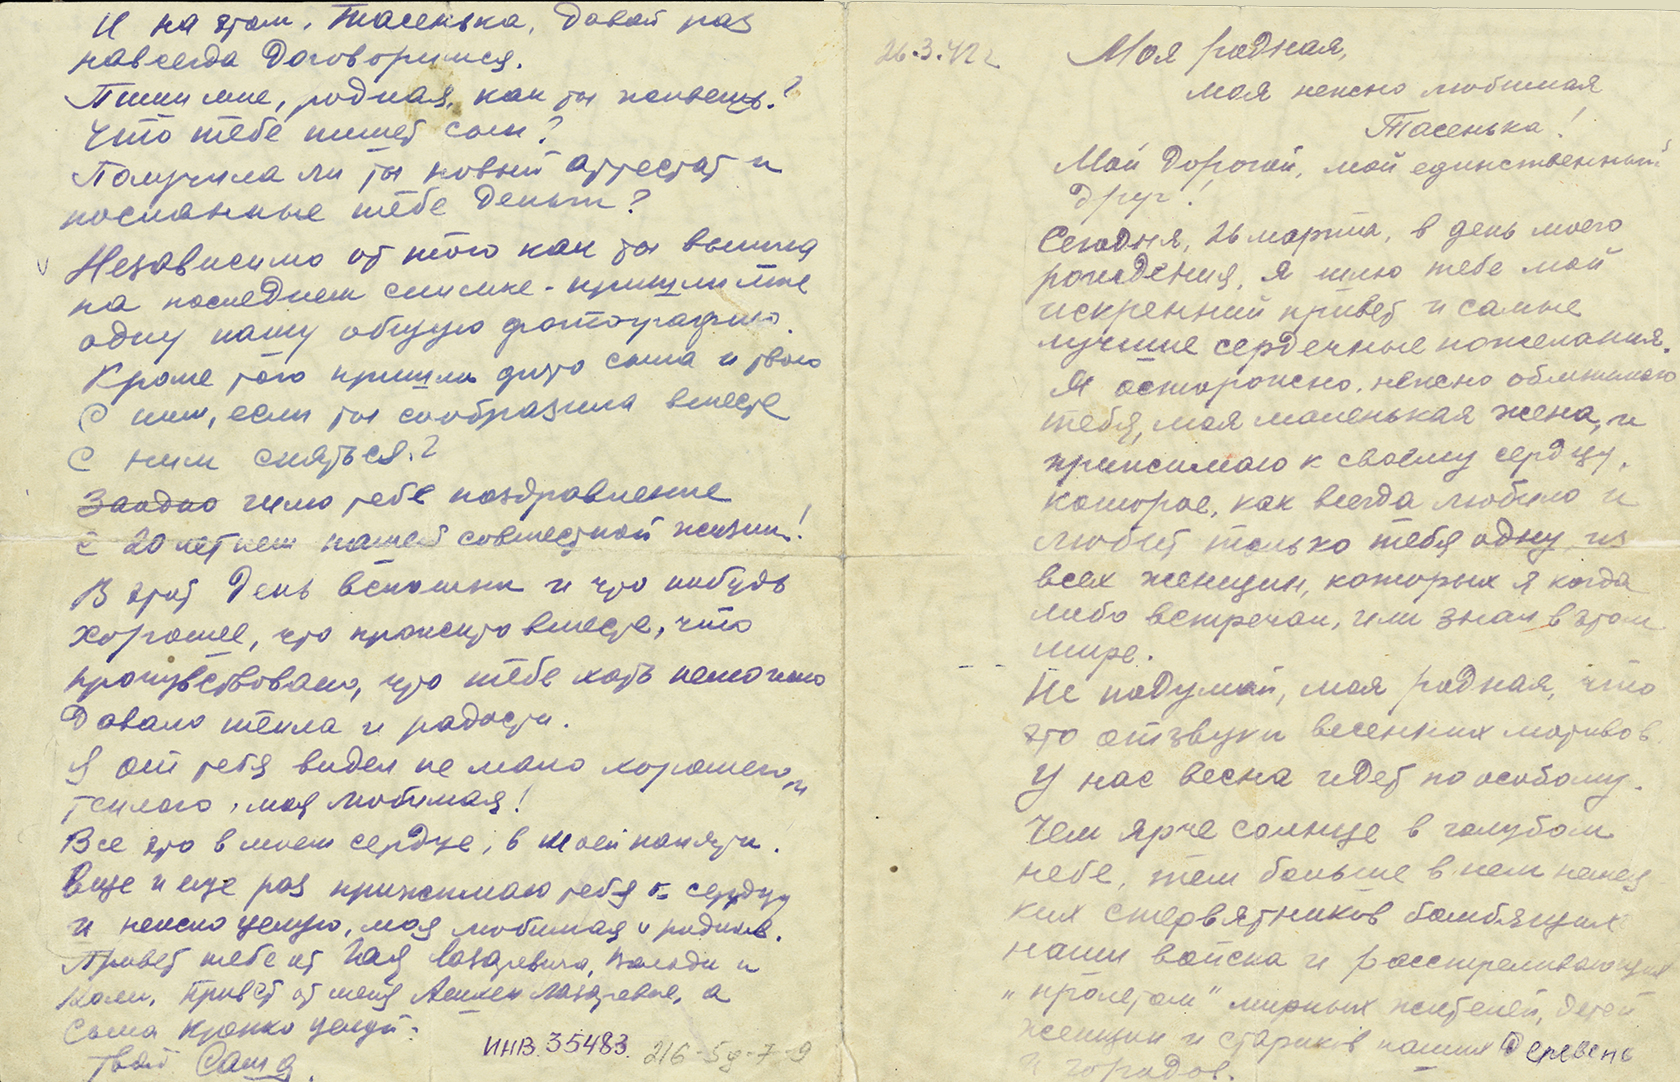 26.3.42 г
Моя родная,
моя нежно любимая
Тасенька!
Мой дорогой, мой единственный
друг!
Сегодня, 26 марта, в день моего
рождения, я шлю тебе мой
искренний привет и самые
лучшие сердечные пожелания.
Я осторожно, нежно обнимаю
тебя, моя маленькая жена, и
прижимаю к своему сердцу,
которое, как всегда любило и
любит только тебя одну из
всех женщин, которых я когда
либо встречал, или знал в этом
мире.
Не подумай, моя родная, что
это отзвуки весенних мотивов.
У нас весна идет по особому.
Чем ярче солнце в голубом
небе, тем больше в нем немец
ких стервятников бомбящих
наши войска и расстреливающих
"пролетом" мирных жителей, детей
женщин и стариков наших деревень
и городов.
И на этом, Тасенька, давай раз
навсегда договоримся.
Пиши мне, родная, как ты живешь?
Что тебе пишет сын?
Получила ли ты новый аттестат и
посланные тебе деньги?
Независимо от того как ты вышла
на последнем снимке - пришли мне
одну нашу общую фотографию.
Кроме того пришли фото сына и твою
с ним, если ты сообразила вместе
с ним сняться.?
Заодно шлю тебе поздравление
с 20 летием нашей совместной жизни!
В этот день вспомни и что нибудь
хорошее, что прожито вместе, что
прочувствовано, что тебе хоть немножко
давало тепла и радости.
Я от тебя видел не мало хорошего и
теплого, моя любимая!
Все это в моем сердце, в моей памяти.
Еще и еще раз прижимаю тебя к сердцу
и нежно целую, моя любимая и родная.
Привет тебе от Лазаревича, Володи и
Коли. Привет от меня Лазаревне, а
сына крепко целуй.
Твой Саша.
ИНВ. 35483 216-5д-7-9